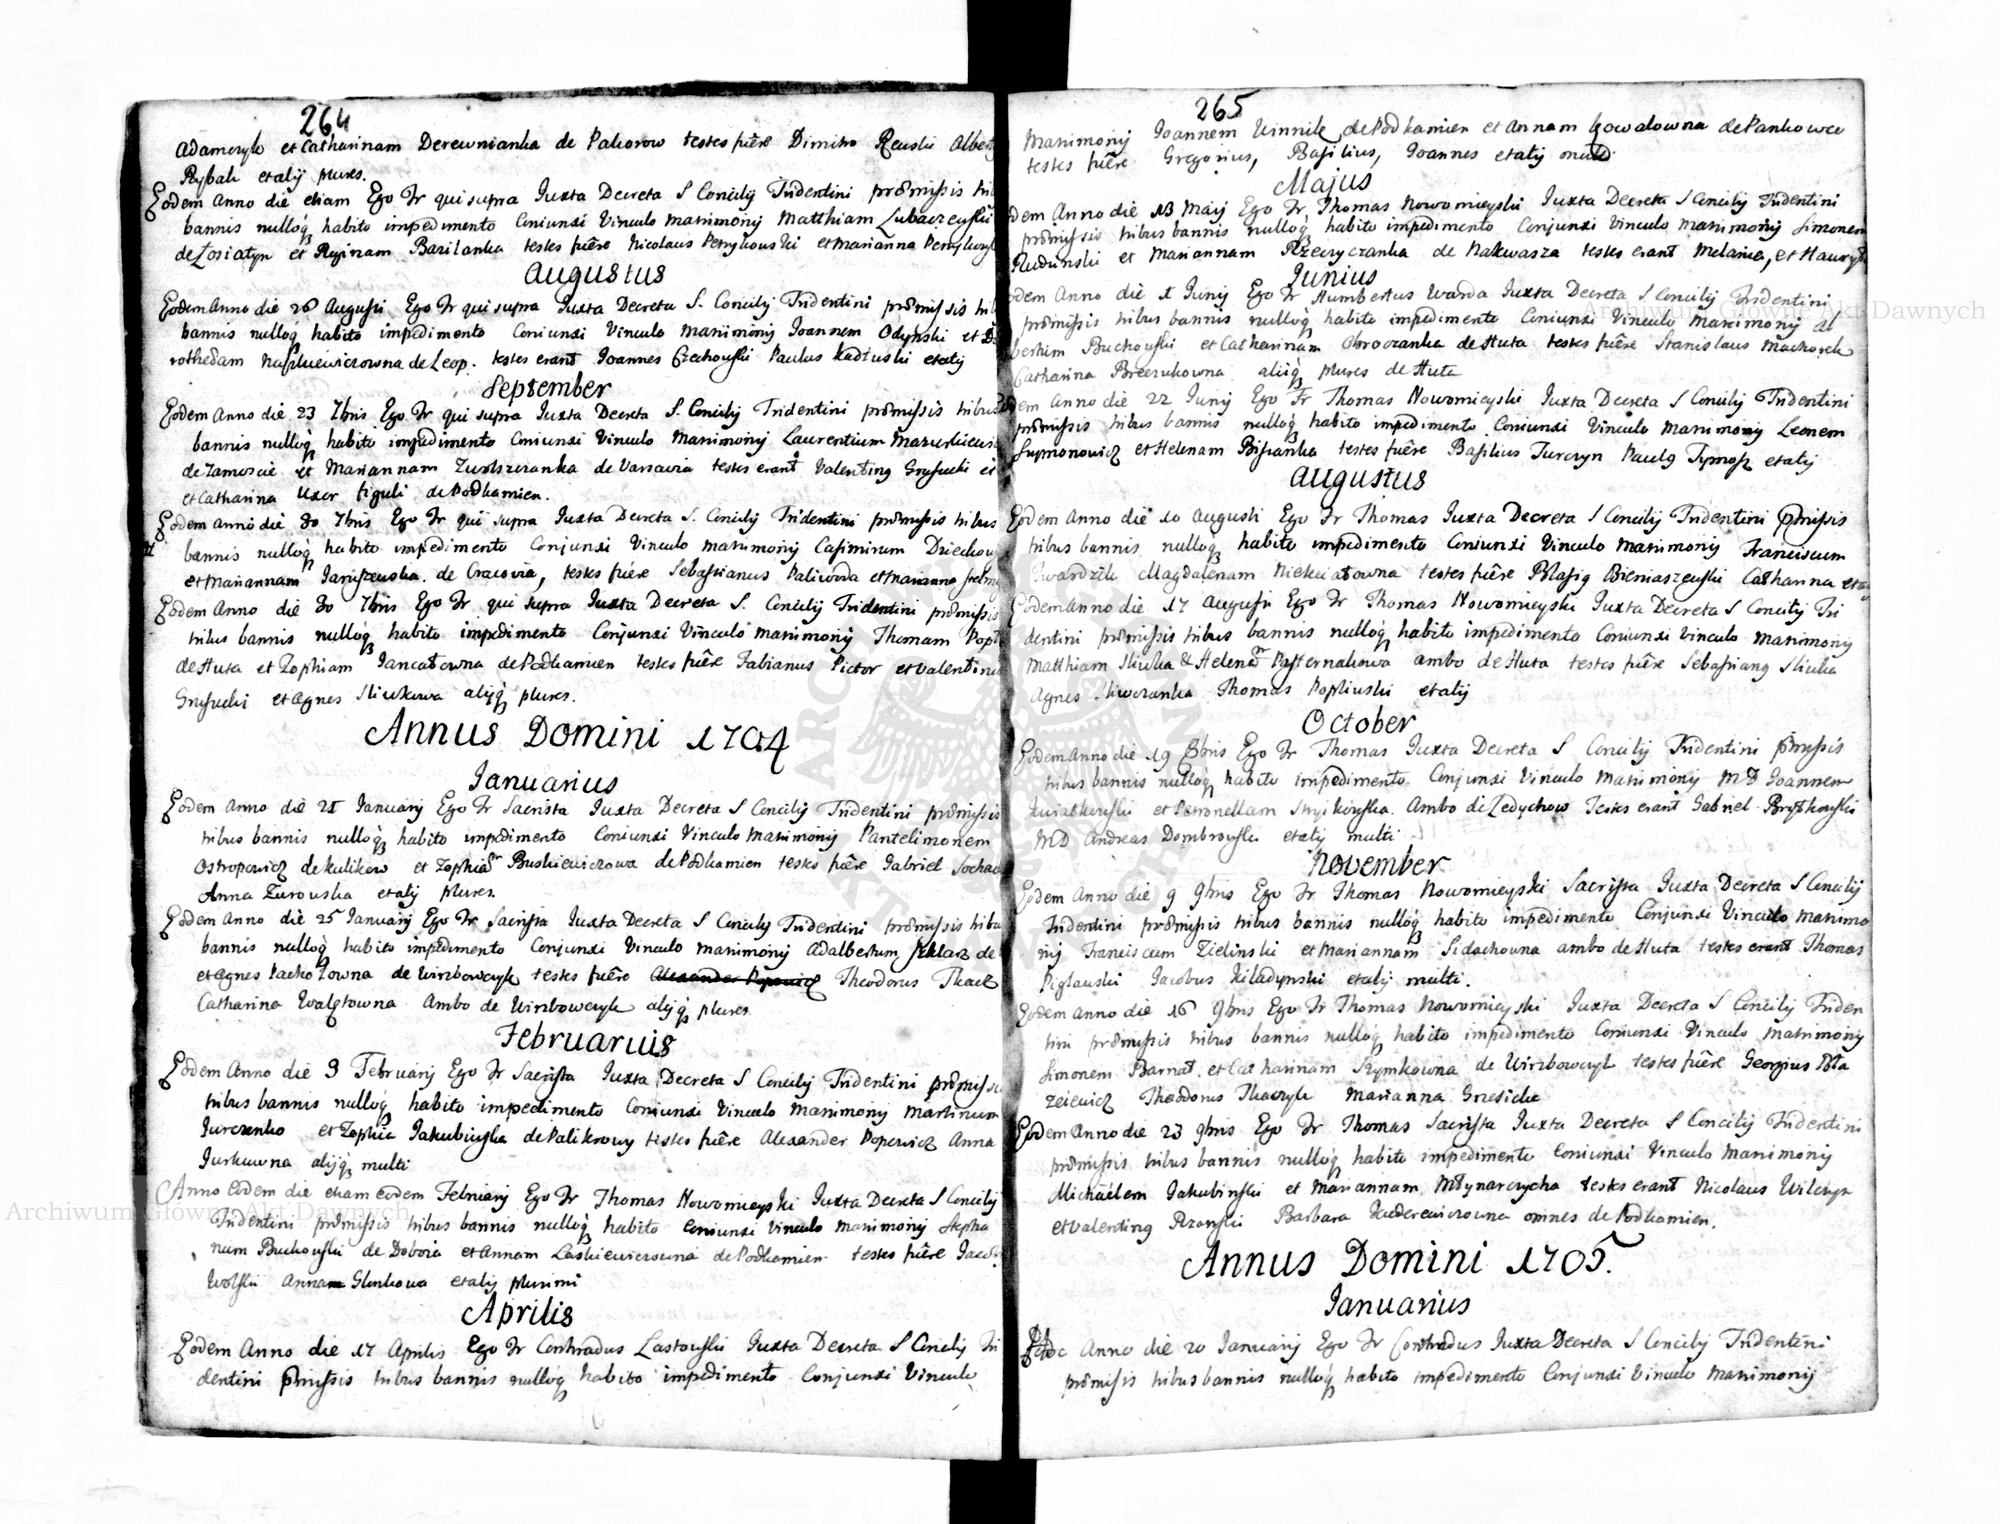 264
Adameryk et Catharinam Derewnianka de Palorow testes fuere Dimitro Reuski Albert
Rybak et alij plures.
Eodem Anno die etiam Ego Fr qui supra Iuxta Decreta S Concilij Tridentini prŏmissis tri
bannis nulloq̨ habito impedimento Coniunxi Vinculo Matrimonij Matthiam Lubaczewski
de Losiatyn et Reginam Bazilanka testes fuere Nicolaus Petrykowski et Marianna
Augustus
Eodem Anno die 26 Augusti Ego Fr qui supra Iuxta Decreta S. Concilij Tridentini prŏmissis tri
bannis nulloq̨ habito impedimento Coniunxi Vinculo Matrimonij Joannem Odynski et Do
rotheam de Leop. testes erant Joannes Czechowski Paulus Kadłuski et alij
September
Eodem Anno die 23 7bris Ego Fr qui supra Iuxta Decreta S. Concilij Tridentini prŏmissis tribus
bannis nulloq̨ habito impedimento Coniunxi Vinculo Matrimonij Laurentium
de Zamoscie et Mariannam de Varsavia testes erant Valentinq Grysiecki et
et Catharina Uxor figuli de Podkamien.
Eodem Anno die 30 7bris Ego Fr qui supra Iuxta Decreta S. Concilij Tridentini prŏmissis tribus
bannis nulloq̨ habito impedimento Conjunxi Vinculo Matrimonij Casimirum
et Mariannam Janiszewska. de Cracovia, testes fuere Sebastianus Paliwoda et Marianna
Eodem Anno die 30 7bris Ego Fr qui supra Iuxta Decreta S. Concilij Tridentini prŏmissis
tribus bannis nulloq̨ habito impedimento Conjunxi Vinculo Matrimonij Thomam
de Huta et Zophiam Jancatowna de Podkamien testes fuere Fabianus Pictor et Valentinus
Grysiecki et Agnes Sliwkowa alijq̨ plures.
Annus Domini 1704
Ianuarius
Eodem Anno die 21 Januarij Ego Fr Sacrista Iuxta Decreta S Concilij Tridentini prŏmissis
tribus bannis nulloq̨ habito impedimento Coniunxi Vinculo Matrimonij Pantelimonem
Ostropowicz de Kulikow et Zophiam Buskiewiczowa de Podkamien testes fuere Gabriel
Anna Zurowska et alij plures.
Eodem Anno die 25 Januarij Ego Fr Sacrista Iuxta Decreta S Concilij Tridentini prŏmissis tribu
bannis nulloq̨ habito impedimento Conjunxi Vinculo Matrimonij Adalbertum Szklarz de
et Agnes de Wirzbowczyk testes fuere Alexander Popowicz Theodorus Tkacz
Catharina Walętowna Ambo de Wirzbowczyk alijq̨ plures
Februarius
Eodem Anno die 3 Februarij Ego Fr Sacrista Iuxta Decreta S Concilij Tridentini prŏmissi
tribus bannis nulloq̨ habito impedimento Coniunxi Vinculo Matrimonij Martinum
Jurczenko et Zophia Jakubinska de Palikrowy testes fuere Alexander Popowicz Anna
Jurkowna alijq̨ multi
Anno Eodem die etiam eodem Februarij Ego Fr Thomas Nowomieyski Iuxta Decreta S Concilij
Tridentini prŏmissis tribus bannis nulloq̨ habito Coniunxi Vinculo Matrimonij Stepha
num Buchowski de Doboia et Annam Laskiewiczowna de Podkamien testes fuere Jacob
Wolski Annam Glinkowa et alij plurimi
Aprilis
Eodem Anno die 17 Aprilis Ego Fr Conthradus Lastowski Iuxta Decreta S Concilij Tri
dentini pmissis tribus bannis nulloq̨ habito impedimento Conjunxi Vinculo
265
Matrimonij Joannem Winnik de Podkamien et Annam Kowalowna de Pankowce
testes fuere Gregorius, Basilius, Joannes et alij multi
Majus
Eodem Anno die 13 Maij Ego Fr Thomas Nowomieyski Iuxta Decreta S Concilij Tridentini
prŏmissis tribus bannis nulloq̨ habito impedimento Conjunxi Vinculo Matrimonij Simonem
Rudinski et Mariannam Rzeczyczanka de Nakwasza testes erant Melania, et
Junius
Eodem Anno die 1 Junij Ego Fr Humbertus Warda Iuxta Decreta S Concilij Tridentini
prŏmissis tribus bannis nulloq̨ habito impedimento Coniunxi Vinculo Matrimonij Al
bertum Buchowski et Catharinam Obroczanka de Huta testes fuere Stanislaus Machorek
Catharina Brezukowna alijq̨ plures de Huta
Eodem Anno die 22 Junij Ego Fr Thomas Nowomieyski Iuxta Decreta S Concilij Tridentini
prŏmissis tribus bannis nulloq̨ habito impedimento Coniunxi Vinculo Matrimonij Leonem
Szymonowicz et Helenam testes fuere Basilius Turczyn Paulq Tymosz et alij
Augustus
Eodem Anno die 10 Augusti Ego Fr Thomas Iuxta Decreta S Concilij Tridentini pmissis
tribus bannis nulloq̨ habito impedimento Coniunxi Vinculo Matrimonij Franciscum
Gwardzik Magdalenam testes fuere Blasiq Bieniaszewski Catharina et
Eodem Anno die 17 Augusti Ego Fr Thomas Nowomieyski Iuxta Decreta S Concilij Tri
dentini prŏmissis tribus bannis nulloq̨ habito impedimento Coniunxi Vinculo Matrimonij
Matthiam Sliwka & Helenam Pasternakowa ambo de Huta testes fuere Sebastianq Sliwka
Agnes Sliwczanka Thomas Popliuski et alij
October
Eodem Anno die 19 8bris Ego Fr Thomas Iuxta Decreta S Concilij Tridentini pmissis
tribus bannis nulloq̨ habito impedimento Conjunxi Vinculo Matrimonij MD Joannem
Kwiatkowski et Petronellam Stryikowska Ambo de Zedychow Testes erant Gabriel
MD Andreas Dombrowski et alij multi
November
Eodem Anno die 9 9bris Ego Fr Thomas Nowomieyski Sacrista Iuxta Decreta S Concilij
Tridentini prŏmissis tribus bannis nulloq̨ habito impedimento Conjunxi Vinculo Matrimo
nij Franciscum Zielinski et Mariannam Sidachowna ambo de Huta testes erant Thomas
Piglauski Jacobus Kiladynski et alij multi.
Eodem Anno die 16 9bris Ego Fr Thomas Nowomieyski Iuxta Decreta S Concilij Triden
tini prŏmissis tribus bannis nulloq̨ habito impedimento Coniunxi Vinculo Matrimonij
Simonem Barnat et Catharinam Szymkowna de Wirzbowczyk testes fuere Georgius Bła
zeiewicz Theodorus Tkaczyk Marianna Grzesicka
Eodem Anno die 23 9bris Ego Fr Thomas Sacrista Iuxta Decreta S Concilij Tridentini
prŏmissis tribus bannis nulloq̨ habito impedimento Coniunxi Vinculo Matrimonij
Michaëlem Jakubinski et Mariannam Młynarczycha testes erant Nicolaus Wilczyn
et Valentinq Barbara omnes de Podkamien.
Annus Domini 1705.
Ianuarius
Hoc Anno die 20 Januarij Ego Fr Conthradus Iuxta Decreta S Concilij Tridentini
prŏmissis tribus bannis nulloq̨ habito impedimento Conjunxi Vinculo Matrimonij
Archiwum Główne Akt Dawnych
Archiwum Główne Akt Dawnych